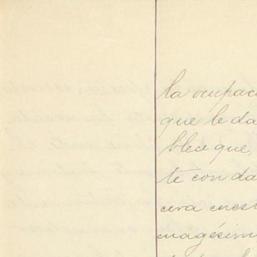 la ocupac
que le da
blece que,
te con da
cera cues
magésim